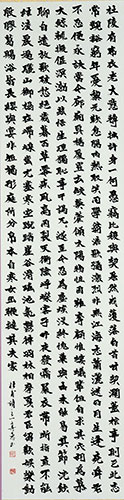 杜陵有布衣老大意轉拙許身一何愚竊比稷與契居然成濩落白首甘契闊蓋棺事則已此志
常覬豁窮年憂黎元歎息腸內熱取笑同學翁浩歌彌激烈非無江海志蕭灑送日月生逢堯舜君
不忍便永訣當今廊廟具構廈豈云缺葵藿傾太陽物性固莫奪顧惟螻蟻輩但自求其穴胡為慕
大鯨輒擬偃溟渤以茲誤生理獨恥事干謁兀兀遂至今忍為塵埃沒終愧巢與由未能易其節沈飲
聊自遣放歌破愁絕歲暮百草零疾風高岡裂天衢陰崢嶸客子中夜發霜嚴衣帶斷指直不得結
凌晨過驪山御榻在嵽嵲蚩尤塞寒空蹴踏崖谷滑瑤池氣鬱律羽林相摩戛君臣留歡娛樂動
殷膠葛賜浴皆長纓與宴非短褐彤庭所分帛本自寒女出鞭撻其夫家